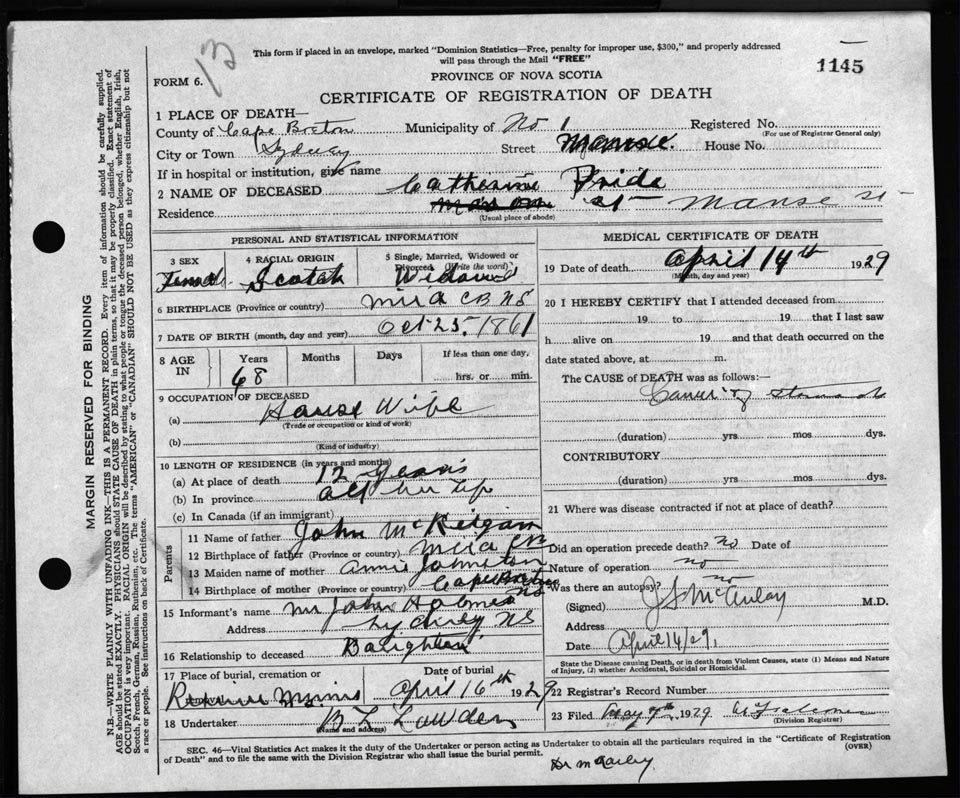 13
This form if placed in an envelope, marked "Dominion Statistics—Free, penalty for improper use, $300," and properly addressed
will pass through the Mail "FREE"
1145
FORM 6.
PROVINCE OF NOVA SCOTIA
CERTIFICATE OF REGISTRATION OF DEATH
MARGIN RESERVED FOR BINDING
N.B.—WRITE PLAINLY WITH UNFADING INK—THIS IS A PERMANENT RECORD. Every item of information should be carefully supplied.
AGE should be stated EXACTLY. PHYSICIANS should STATE CAUSE OF DEATH in plain terms, so that it may be properly classified. Exact statement of
OCCUPATION is very important. RACIAL ORIGIN will be described by stating to what people or tongue the deceased person belonged, whether English, Irish,
Scotch, French, German, Russian, Ruthenian, etc. The terms "AMERICAN" or "CANADIAN" SHOULD NOT BE USED as they express citizenship but not
a race or people. See instructions on back of Certificate.
1 PLACE OF DEATH—
County of Cape Breton Municipality of No 1 Registered No.
(For use of Registrar General only)
City or Town Sydney Street Manse. House No.
If in hospital or institution, give name
2 NAME OF DECEASED Catherine Pride
Residence Manse st
(Usual place of abode)
PERSONAL AND STATISTICAL INFORMATION
3 SEX 4 RACIAL ORIGIN 5 Single, Married, Widowed or
Divorced (Write the word)
Female Scotch Widowed
6 BIRTHPLACE (Province or country) Mira CB NS
7 DATE OF BIRTH (month, day and year) Oct 25. 1861
8 AGE IN Years Months Days If less than one day,
68 hrs. or min.
9 OCCUPATION OF DECEASED
(a) House Wife
(Trade or occupation or kind of work)
(b)
(Kind of industry)
10 LENGTH OF RESIDENCE (in years and months)
(a) At place of death 12 years
(b) In province all her life
(c) In Canada (if an immigrant)
Parents
11 Name of father John McKeigan
12 Birthplace of father (Province or country) Mira CB
13 Maiden name of mother Annie Johnston
14 Birthplace of mother (Province or country) Cape Breton NS
15 Informant's name Mr John Holmes
Address Sydney NS
16 Relationship to deceased Daughter
17 Place of burial, cremation or Date of burial
April 16th 1929
18 Undertaker
(Name and address)
MEDICAL CERTIFICATE OF DEATH
19 Date of death April 14th 1929
(Month, day and year)
20 I HEREBY CERTIFY that I attended deceased from
19 to 19 that I last saw
h alive on 19 and that death occurred on the
date stated above, at m.
The CAUSE of DEATH was as follows:—
Cancer of Stomach
(duration) yrs. mos dys.
CONTRIBUTORY
(duration) yrs. mos dys.
21 Where was disease contracted if not at place of death?
Did an operation precede death? No Date of
Nature of operation no
Was there an autopsy? no
(Signed) J S McAulay M.D.
Address
Date April 14/29.
State the Disease causing Death, or in death from Violent Causes, state (1) Means and Nature
of Injury, (2) whether Accidental, Suicidal or Homicidal.
22 Registrar's Record Number
23 Filed May 1929
(Division Registrar)
SEC. 46—Vital Statistics Act makes it the duty of the Undertaker or person acting as Undertaker to obtain all the particulars required in the "Certificate of Registration
of Death" and to file the same with the Division Registrar who shall issue the burial permit. (OVER)